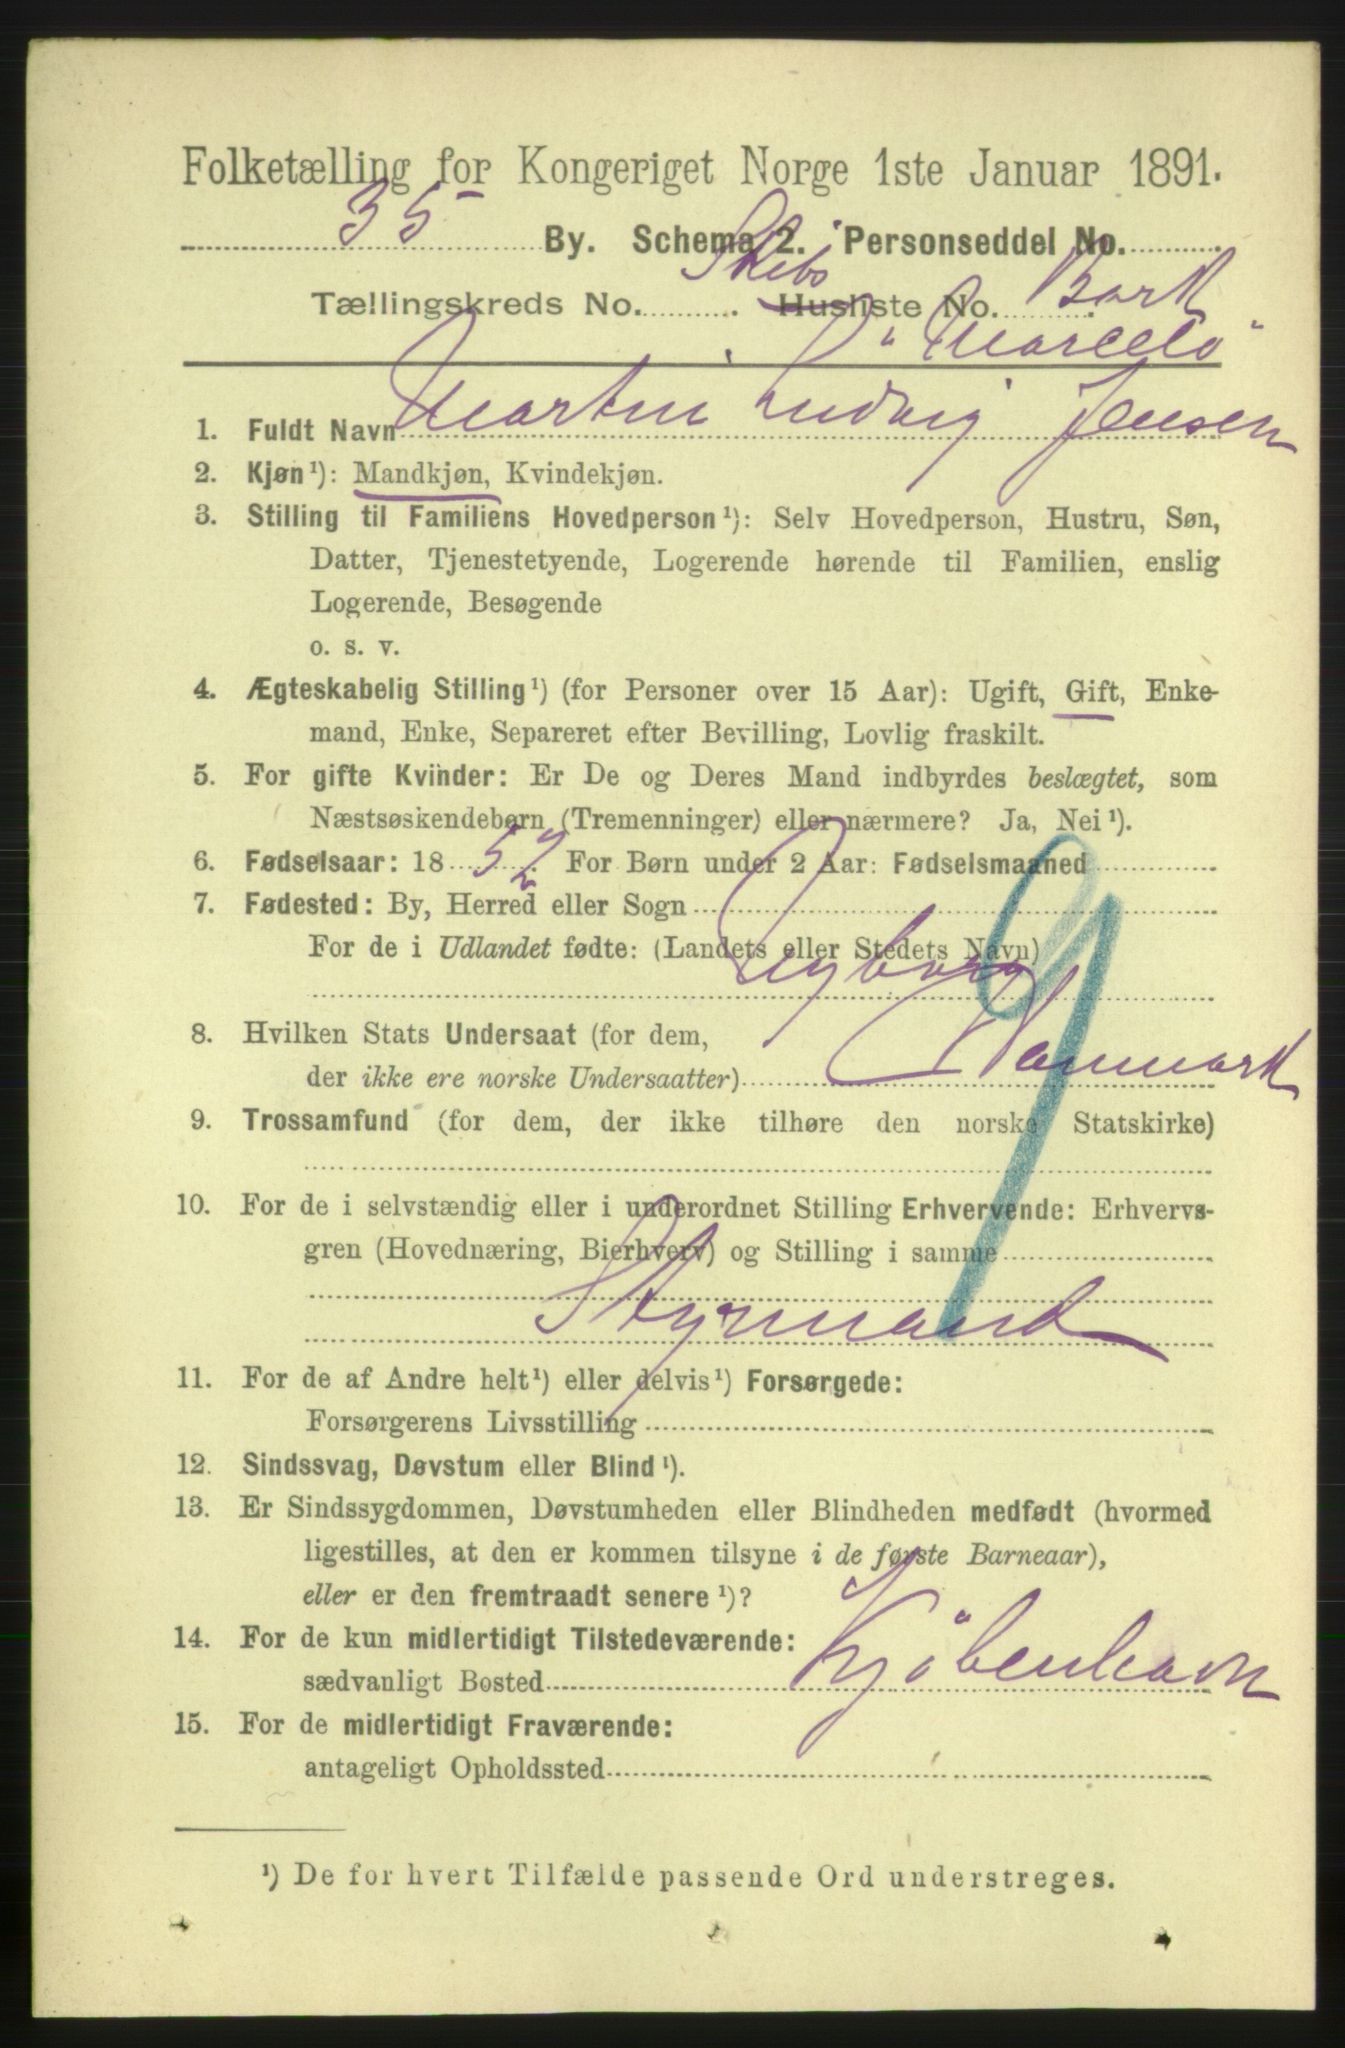 Folketælling for Kongeriget Norge 1ste Januar 1891.
35 By. Schema 2. Personseddel No.
Skibs
Tællingskreds No. . Husliste No. Bark .
"Marcelo"
1. Fuldt Navn Martin Ludvig Jensen
2. Kjøn¹): Mandkjøn, Kvindekjøn.
3. Stilling til Familiens Hovedperson¹): Selv Hovedperson, Hustru, Søn,
Datter, Tjenestetyende, Logerende hørende til Familien, enslig
Logerende, Besøgende
o. s. v.
4. Ægteskabelig Stilling¹) (for Personer over 15 Aar): Ugift, Gift, Enke-
mand, Enke, Separeret efter Bevilling, Lovlig fraskilt.
5. For gifte Kvinder: Er De og Deres Mand indbyrdes beslægtet, som
Næstsøskendebørn (Tremenninger) eller nærmere? Ja, Nei¹).
6. Fødselsaar: 1852. For Børn under 2 Aar: Fødselsmaaned
7. Fødested: By, Herred eller Sogn
For de i Udlandet fødte: (Landets eller Stedets Navn)
Nyborg
8. Hvilken Stats Undersaat (for dem,
der ikke ere norske Undersaatter) Danmark
9. Trossamfund (for dem, der ikke tilhøre den norske Statskirke)
9
10. For de i selvstændig eller i underordnet Stilling Erhvervende: Erhvervs-
gren (Hovednæring, Bierhverv) og Stilling i samme
Styrmand
11. For de af Andre helt¹) eller delvis¹) Forsørgede:
Forsørgerens Livsstilling
12. Sindssvag, Døvstum eller Blind¹).
13. Er Sindssygdommen, Døvstumheden eller Blindheden medfødt (hvormed
ligestilles, at den er kommen tilsyne i de første Barneaar),
eller er den fremtraadt senere¹)?
14. For de kun midlertidigt Tilstedeværende:
sædvanligt Bosted Kjöbenhavn
15. For de midlertidigt Fraværende:
antageligt Opholdssted
¹) De for hvert Tilfælde passende Ord understreges.